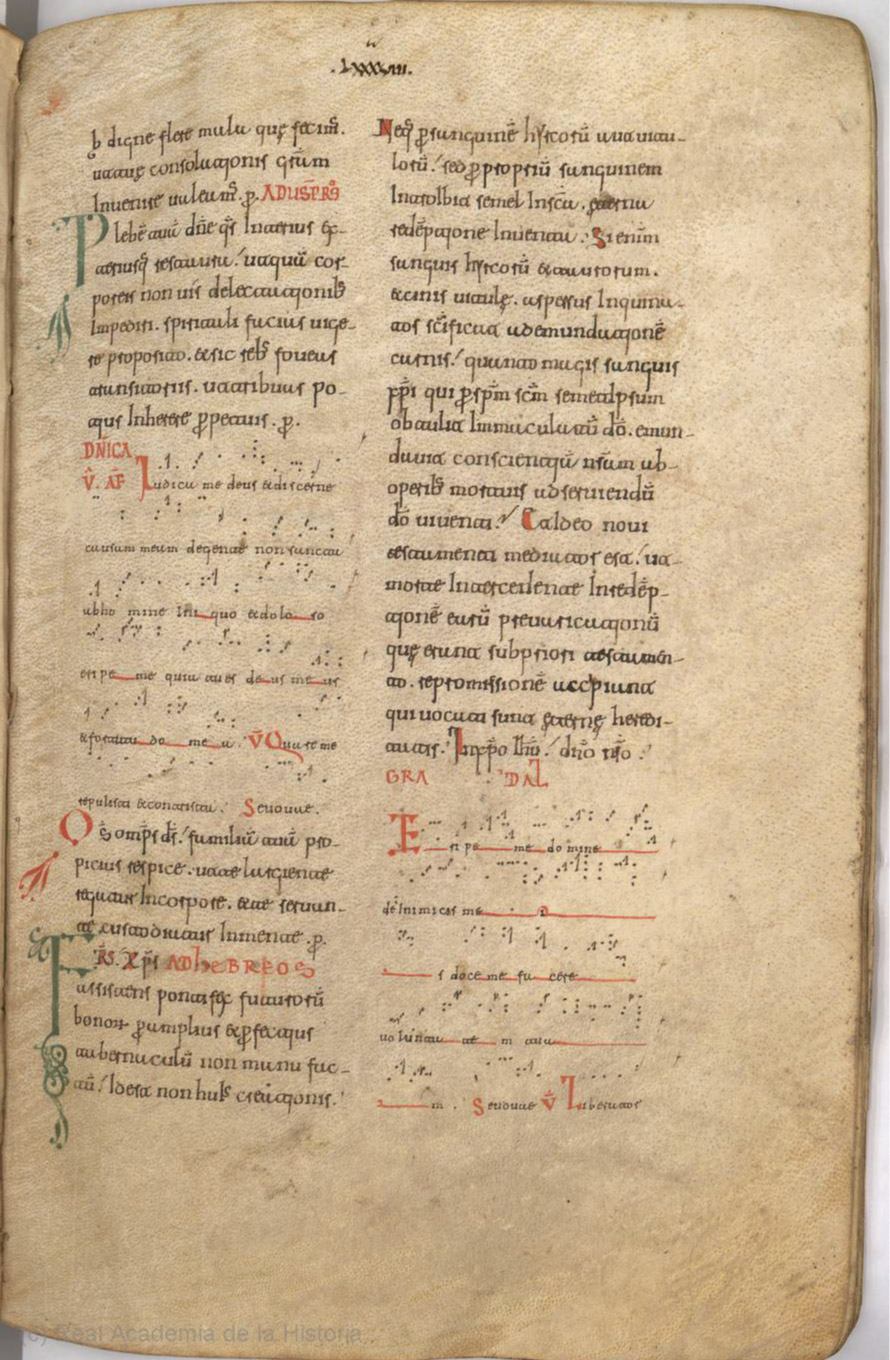 .LXXXXIII.
b digne flere mala quę fecim̄.
ut tuę consolationis gr̄am
Inuenire ualeam̄. p̄. AD USPR̄S
Plebē tuā dn̄e qs̄ Interius ex-
teriusq̨ restaura; ut quā cor-
poreis non uis delectationib;
Impediri. spirituali facias uige-
re proposito. et sic reb; foueas
transitoriis. ut tribuas po-
tius Inherere p̱petuis. p̄.
DN̄ICA
V̂. AP̄ Iudica me deus et discerne
causam meam de gente non sancta
ab ho mine Ini quo et dolo so
eri pe me quia tu es de us me us
et fortitu do me a V̄ Qua re me
repulisti et contristatu. Seuouae.
Qs̄ omp̄s ds̄. familiā tuā pro-
picius respice. ut te largiente
regatur In corpore. et te seruan-
te custodiatur In mente. p̄.
FR̄S. Xp̄s AD hEBREOS
assistens pontifex futurorū
bonor p̱ amplius et p̱fectius
tabernaculū non manu fac-
tū; Id est non huis creationis.
Neq̨ p̱ sanguinē hyrcorū aut uitu-
lorū; sed p̱ propriū sanguinem
Introibit semel In scā. ęterna
redēptione Inuenta. Si enim
sanguis hyrcorū et taurorum.
et cinis uitulę. aspersus Inquina-
tos sc̄ificat ad emundationē
carnis; quanto magis sanguis
xp̄i qui p̱ sp̄m sc̄m semetipsum
obtulit Immaculatū dō. emun-
dauit conscientiā nr̄am ab
operib; mortuis ad seruiendū
dō uiuenti; Et ideo noui
testamenti mediator est; ut
morte Intercedente In redēp-
tionē earū preuaricationū
quę erant sub priori testamen-
to. repromissionē accipiant
qui uocati sunt ęternę heredi-
tatis; In xp̄o Ih̄u; dn̄o nr̄o.
GRA DAL
E ri pe me do mine
de Inimicis me
s doce me fa cere
uo lunta te m tua
m. Seuouae V̄ Liberator